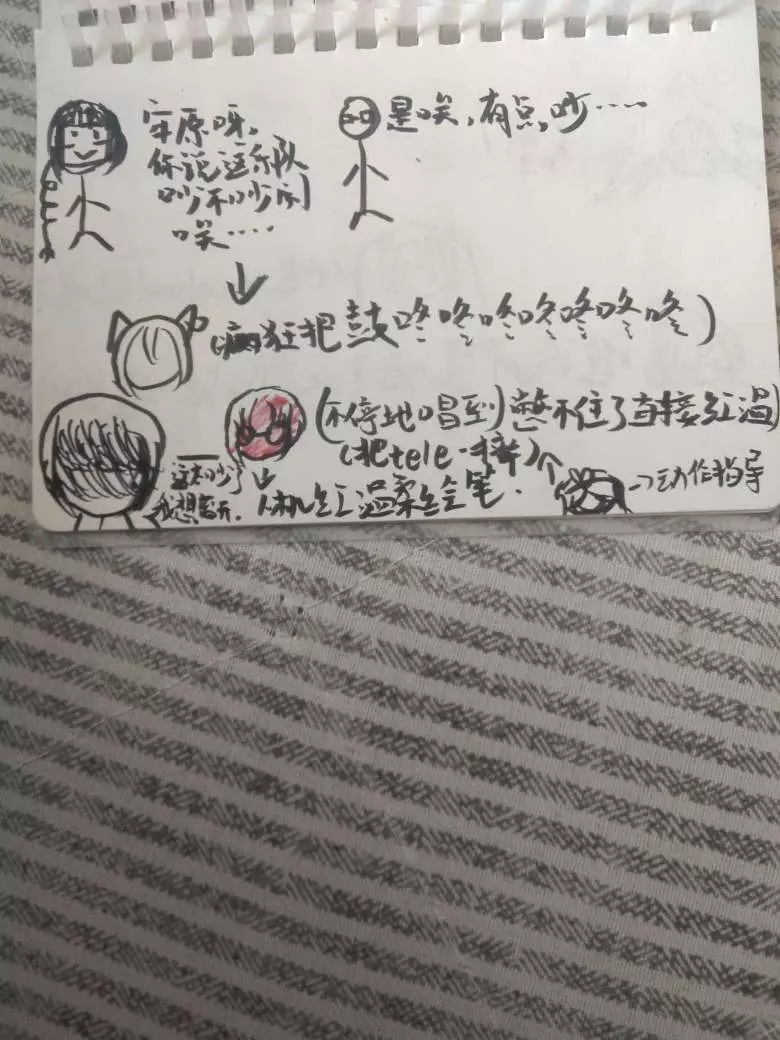 宇原呀,
你说这乐队
吵不吵闹
唉····
是唉,有点吵····
(疯狂把鼓咚咚咚咚咚咚咚)
(不停地唱到)憋不住了直接红温
(把tele一摔)
这太吵了
我想离开.
人机红温柔绘笔.
动作指导